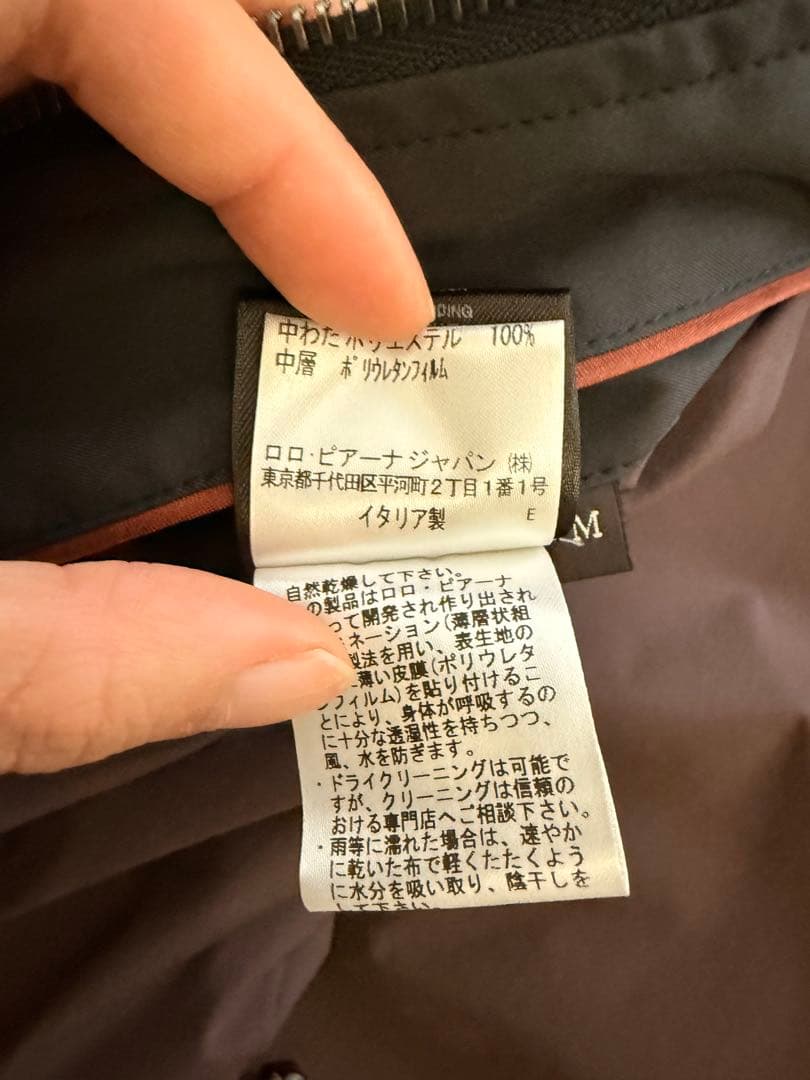 DING
中わた ポリエステル 100%
中層 ポリウレタンフィルム
ロロ・ピアーナ ジャパン (株)
東京都千代田区平河町2丁目1番1号
イタリア製 E
M
自然乾燥して下さい。
の製品はロロ・ピアーナ
って開発され作り出され
ネーション(薄層状組
製法を用い、表生地の
薄い皮膜(ポリウレタ
フィルム)を貼り付けるこ
とにより、身体が呼吸するの
に十分な透湿性を持ちつつ、
風、水を防ぎます。
・ドライクリーニングは可能で
すが、クリーニングは信頼の
おける専門店へご相談下さい。
・雨等に濡れた場合は、速やか
に乾いた布で軽くたたくよう
に水分を吸い取り、陰干しを
して下さい。